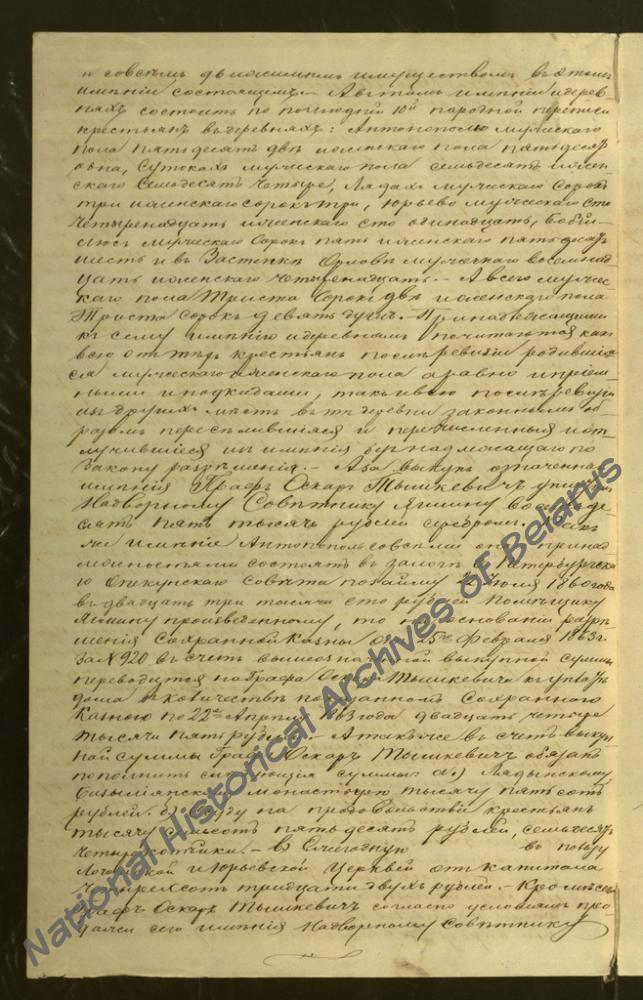 и совсѣмъ движимымъ имуществомъ въ этомъ
имѣніи состоящемъ. – А въ томъ имѣніи и дерев-
няхъ состоитъ по послѣдней 10й народной переписи
крестьянъ въ деревняхъ: Антонополю мужескаго
пола пятьдесятъ два женскаго пола пятьдесятъ
одна, Сутокахъ мужескаго пола семьдесятъ женс-
скаго Семьдесятъ четыре, Лядахъ мужескаго Сорокъ
три женскаго сорокъ три, Юрьево мужескаго сто
четыренадцать женскаго сто одинадцать,
мужескаго Сорокъ пять женскаго пятьдесятъ
шесть и въ Застенкѣ Орловѣ мужескаго восемнад-
цать женскаго четыренадцать. – А всего мужес-
каго пола Триста Сорокъ два женскаго пола
Триста сорокъ девять душъ. – Принадлежащими
къ сему имѣнію и деревнямъ почитаются какъ
крестьянъ послѣ ревизіи родившіе-
ся мужескаго и женскаго пола а равно и пріем-
ными и подкидыши, такъ и всѣ послѣ ревизіи
изъ другихъ мѣстъ въ тѣ деревни законнымъ об-
разомъ переселившіеся и перечисленныя и от-
лучившіеся изъ имѣнія безъ надлежащаго по
закону разрѣшенія. – А за выкупъ означеннаго
имѣнія Графъ Оскаръ Тышкевичъ
Надворному Совѣтнику Ягмину
сятъ пять тысячъ рублей серебромъ.
же имѣніе Антонополь совсѣми онаго принад-
лежностями состоитъ въ залогѣ С Петербургска-
го Опекунскаго Совѣта по займу 22 Іюля 1860 года
въ двадцать три тысячи сто рублей Помѣщику
Ягмину произведенному, то на основаніи разрѣ-
шенія Сохранной Казны отъ 25го Февраля 1863 г.
за № 920 въ счетъ вышеозначенной выкупной Суммы
переводится на Графа Оскара Тышкевича
дома въ количествѣ показанномъ Сохранною
Казною по 22е Апрѣля 1863 года двадцать четыре
тысячи пять рублей. – А также въ счетъ выкуп-
ной суммы Графъ Оскаръ Тышкевичъ обязанъ
пополнить слѣдующія суммы а.) Лядынскому
Базыліянскому Монастырю тысячу пятьсотъ
рублей. б.) Ссуду на продовольствіе крестьянъ
тысячу семьсотъ пятьдесятъ рублей, семьдесятъ
четыре копѣйки. – в.) Ежегодную въ пользу
Логойской и Юрьевской Церквей отъ капитала
Четырехсотъ тридцати двухъ рублей. – Кромѣ сего
Графъ Оскаръ Тышкевичъ согласно условіямъ про-
дажи сего имѣнія Надворному Совѣтнику
National Historical Archives of Belarus